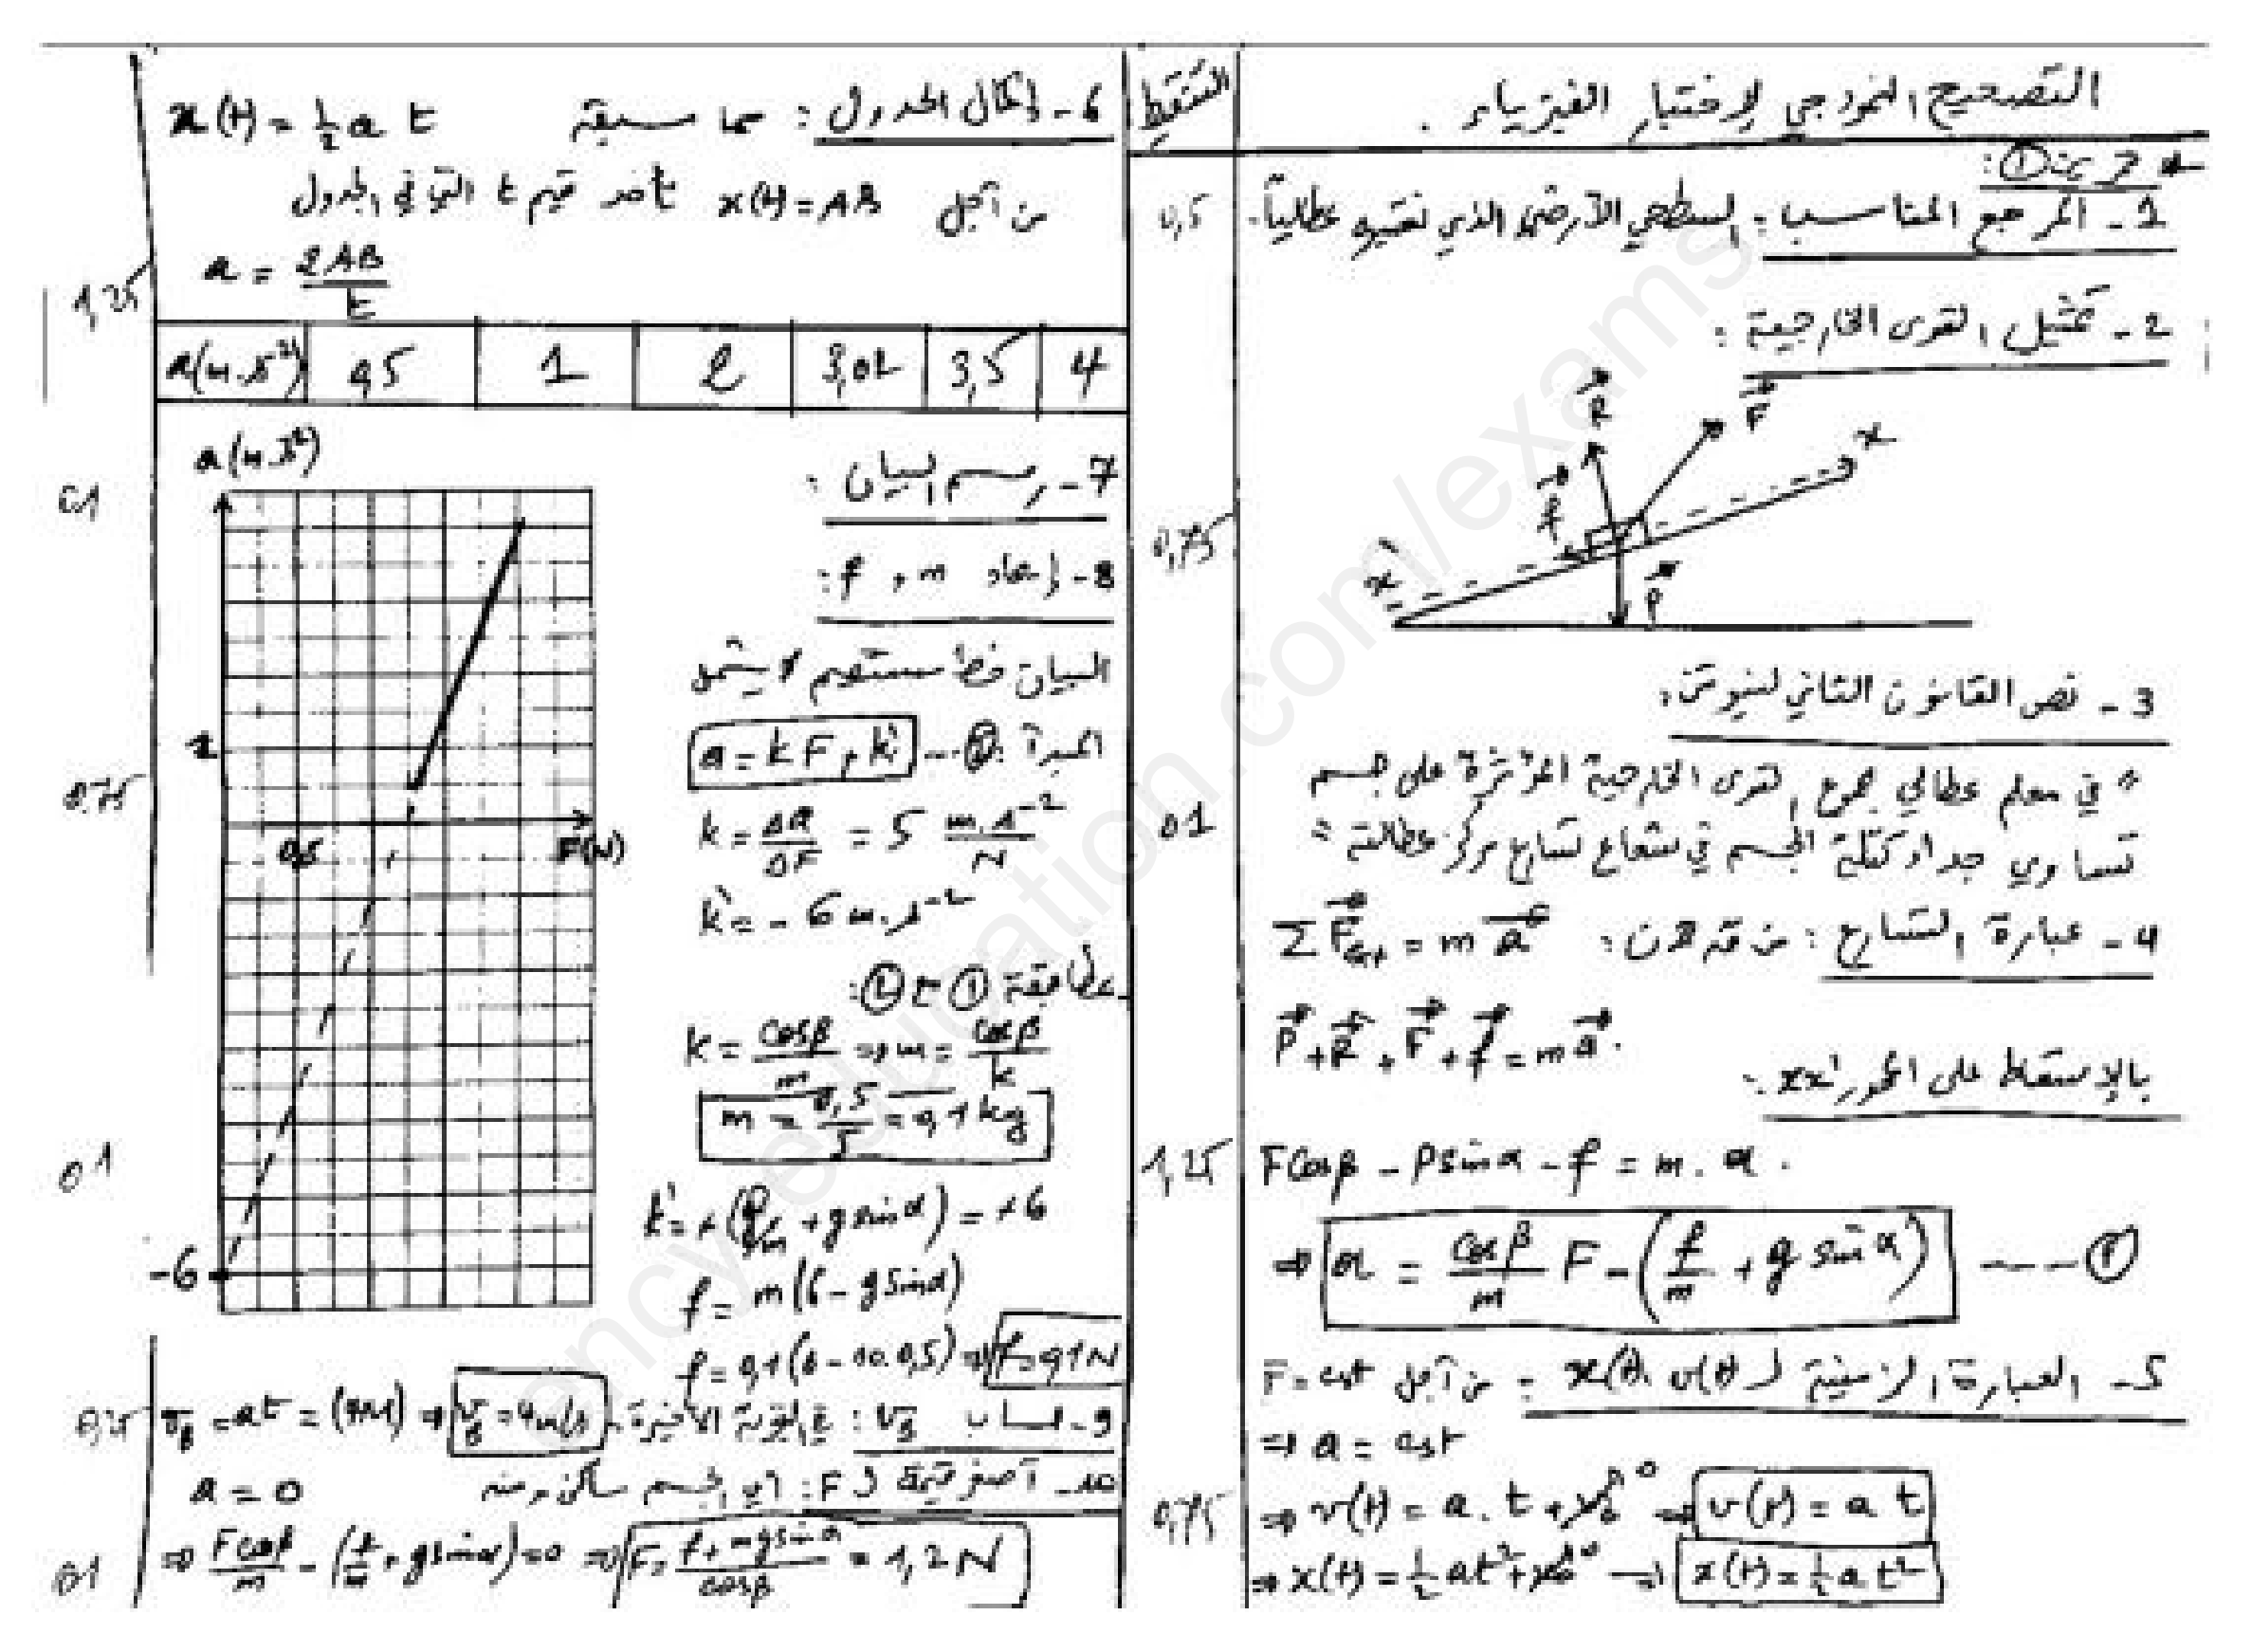 التصحيح النموذجي لإختبار الفيزياء .
التنقيط
1 - المرجع المناسب : السطحي الأرضي الذي نعتبره عطالياً.
0,5
2 - تمثيل القوى الخارجية :
R F x
f
x'
P
0,75
3 - نص القانون الثاني لنيوتن:
" في معلم عطالي مجموع القوى الخارجية المؤثرة على جسم
تساوي جداء كتلة الجسم في شعاع تسارع مركز عطالته "
01
4 - عبارة التسارع : من ق 2 ن : Σ F⃗ext = m a⃗
P⃗ + R⃗ + F⃗ + f⃗ = m a⃗ .
بالإسقاط على المحور xx' :
1,25
F cosβ - P sinα - f = m . a .
⇒ a = cosβ/m F - (f/m + g sinα) ---- ①
5 - العبارة الزمنية لـ v(t) ، x(t) : من أجل F = cst
⇒ a = cst
0,75
⇒ v(t) = a . t + v₀ ⁰ ⇒ v(t) = a t
⇒ x(t) = ½ a t² + x₀ ⁰ ⇒ x(t) = ½ a t²
6 - إكمال الجدول : مما سبق x(t) = ½ a t
من أجل x(t) = AB نأخذ قيم t التي في الجدول
a = 2AB/t
1,25
a(m.s⁻²) 0,5 1 2 3,02 3,5 4
7 - رسم البيان :
01
a(m.s⁻²)
2
0,5
F(N)
-6
8 - إيجاد m ، f :
البيان خط مستقيم لا يشمل
المبدأ : a = k F + k' --- ②
0,75
k = Δa/ΔF = 5 m.s⁻²/N
k' = - 6 m.s⁻²
بمطابقة ① مع ② :
k = cosβ/m ⇒ m = cosβ/k
m = 0,5/5 = 0,1 kg
01
k' = + (f/m + g sinα) = +6
f = m(6 - g sinα)
f = 0,1(6 - 10.0,5) ⇒ f = 0,1 N
9 - حساب vB : في التجربة الأخيرة. vB = at = (4x1) ⇒ vB = 4m/s
0,25
10 - أصغر قيمة لـ F : الجسم ساكن ومنه a = 0
⇒ F cosβ/m - (f/m + g sinα) = 0 ⇒ F = f + mg sinα/cosβ = 1,2 N
01
ency-education.com/exams